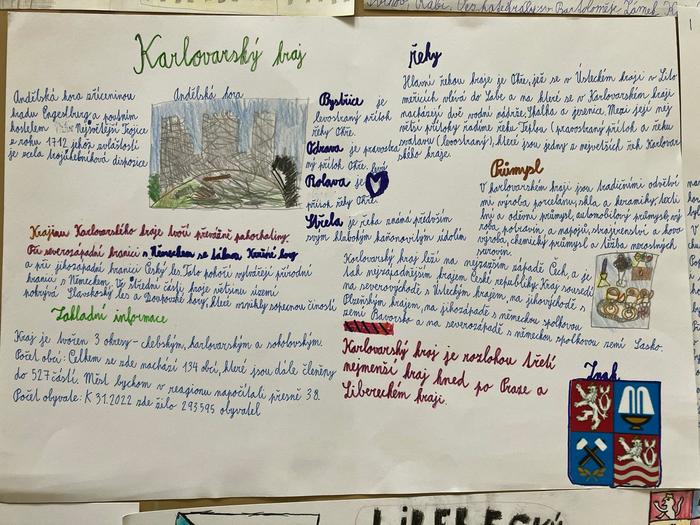 Karlovarský kraj
Andělská hora zříceninou
hradu Engelsburg a poutním
kostelem Nejsvětější Trojice
z roku 1712 jehož zvláštností
je zcela trojúhelníková dispozice
Andělská hora
Krajinu Karlovarského kraje tvoří převážně pahorkatiny.
Při severozápadní hranici s Německem se táhnou, Krušné hory
a při jihozápadní hranici Český les. Tato pohoří vytvářejí přírodní
hranici s Německem. Ve střední části, kraje většinu území
pokrývá Slavkovský les a Doupovské hory, které vznikly sopečnou činností.
Základní informace
Kraj je tvořen 3 okresy - chebským, karlovarským a sokolovským
Počet obcí: Celkem se zde nachází 134 obcí, které jsou dále členěny
do 527 částí. Měst bychom v reagionu napočítali přesně 38.
Počet obyvate: K 31.2022 zde žilo 293 595 obyvatel
řeky
Hlavní řekou kraje je Ohře, jež se v Ústeckém kraji v Lito
měřicích vlévá do Labe a na které se v Karlovarském kraji
nacházejí dvě vodní nádrže, Skalka a Jesenice. Mezi její něj
větší přítoky řadíme řeku Teplou (pravostranný přítok a řeku
svatavu (levostranný), které jsou jedny z největších řek Karlovar
ského kraje.
Bystřice je
levostranný přítok
řeky Ohře.
Odrava je pravostra
ný přítok Ohře.
Rolava je
přítok řeky Ohře.
Střela je řeka známá především
svým hlubokým kaňonovitým údolím.
Průmysl
V karlovarském kraji jsou tradičními odvětví
mi výroba porcelánu, skla a keramiky, texti
lní a oděvní průmysl, automobilový průmysl, vý
roba potravin a nápojů, strojírenství a kovo
výroba, chemický průmysl a těžba nerostných
surovin.
Karlovarský kraj leží na nejzazším západě Čech, a je
tak nejzápadnějším krajem České republiky. Kraj sousedí
na severovýchodě s Ústeckým krajem, na jihovýchodě s
Plzeňským krajem, na jihozápadě s německou spolkovou
zemí Bavorsko a na severozápadě s německou spolkovou zemí Sasko.
Karlovarský kraj je rozlohou třetí
nejmenší kraj hned po Praze a
Libereckém kraji.
Znak
LIBERECKÝ